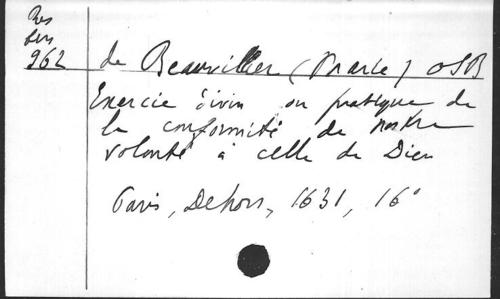 Res
962
de Beauviller (Marie) OSB
Exercie divin ou pratique de
la conformité de nostre
volonté à celle de Dieu
Paris, Dehors, 1631, 16°